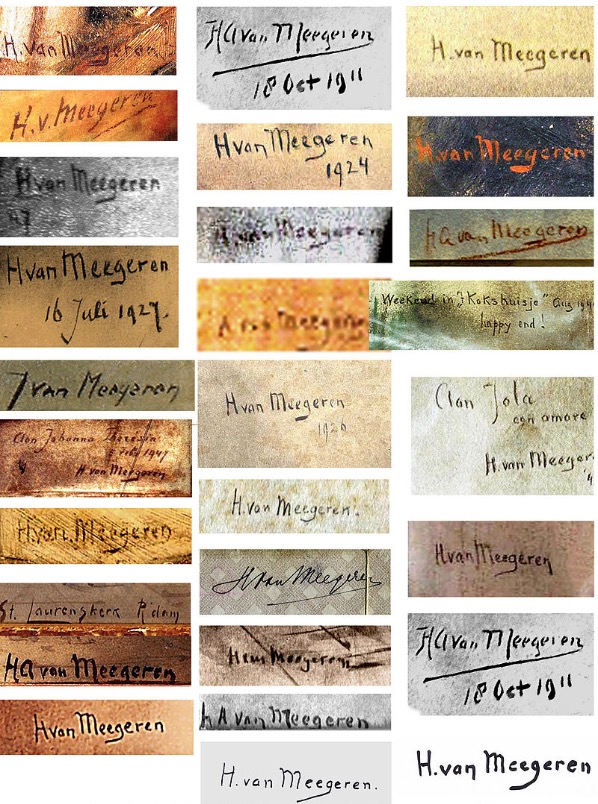 H. van Meegeren
H. v. Meegeren
H van Meegeren
47
H van Meegeren
16 Juli 1927.
J van Meegeren
Aan Johanna Theresia
Juli 1947
H. van Meegeren
H. van Meegeren
St. Laurenskerk R.dam
HA van Meegeren
H van Meegeren
HA van Meegeren
18 Oct 1911
H van Meegeren
1924
H. van Meegeren
van Meegeren
H van Meegeren
1926
H. van Meegeren.
H van Meegeren
H van Meegeren
HA van Meegeren
H. van Meegeren.
H. van Meegeren
H. van Meegeren
HA van Meegeren
Weekend in 't Kokshuisje" Aug 194
happy end!
Aan Jola
con amore
H. van Meeger
'4
H van Meegeren
HA van Meegeren
18 Oct 1911
H. van Meegeren